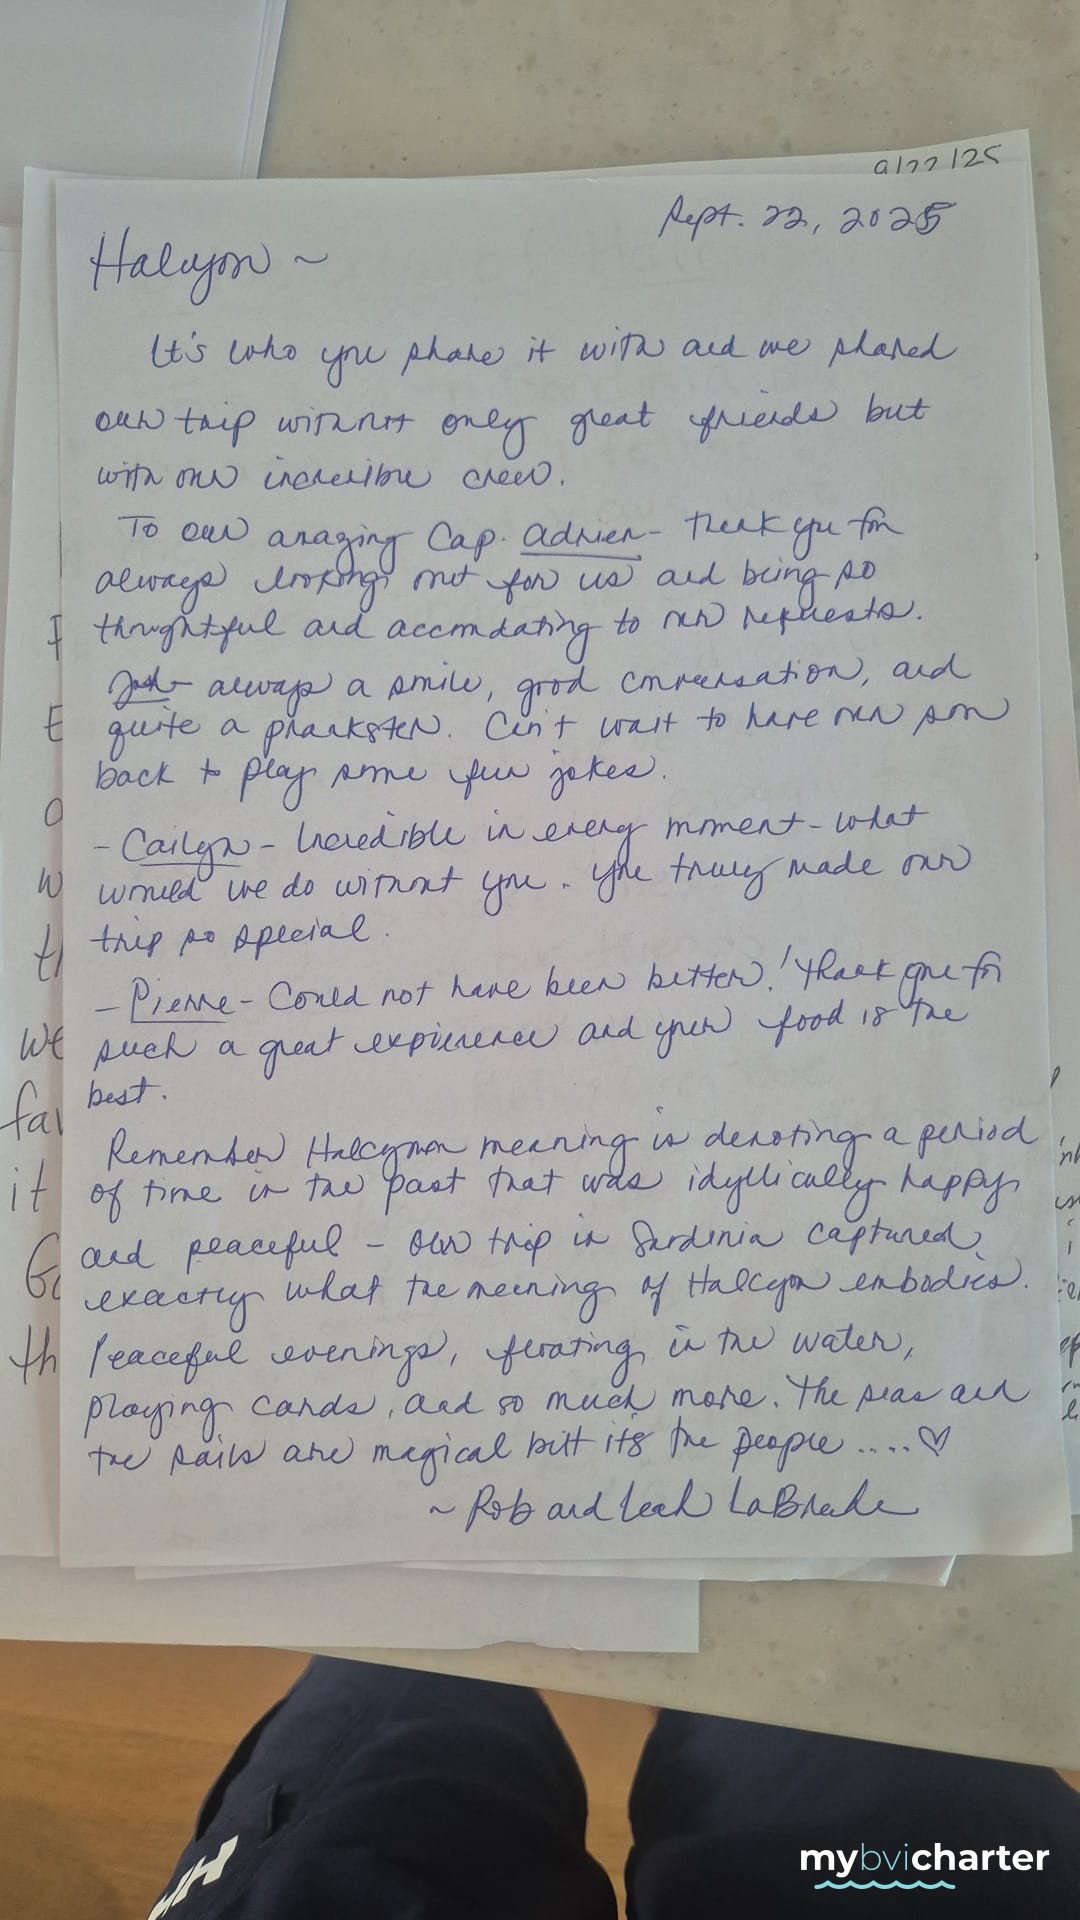 9/22/25
Sept. 22, 2025
Halcyon ~
It's who you share it with and we shared
our trip with not only great friends but
with our incredible crew.
To our amazing Cap. Adrien - thank you for
always looking out for us and being so
thoughtful and accomdating to our requests.
Josh - always a smile, good conversation, and
quite a prankster. Can't wait to have our son
back to play some fun jokes.
- Cailyn - Incredible in every moment - what
would we do without you. You truly made our
trip so special.
- Pierre - Could not have been better! Thank you for
such a great expierence and your food is the
best.
Remember Halcyon meaning is denoting a period
of time in the past that was idyllically happy
and peaceful - Our trip in Sardinia captured
exactly what the meaning of Halcyon embodies.
Peaceful evenings, floating in the water,
playing cards, and so much more. The seas and
the sails are magical but it's the people .... ♡
~ Rob and Leah
we
fav
it
th
mybvicharter